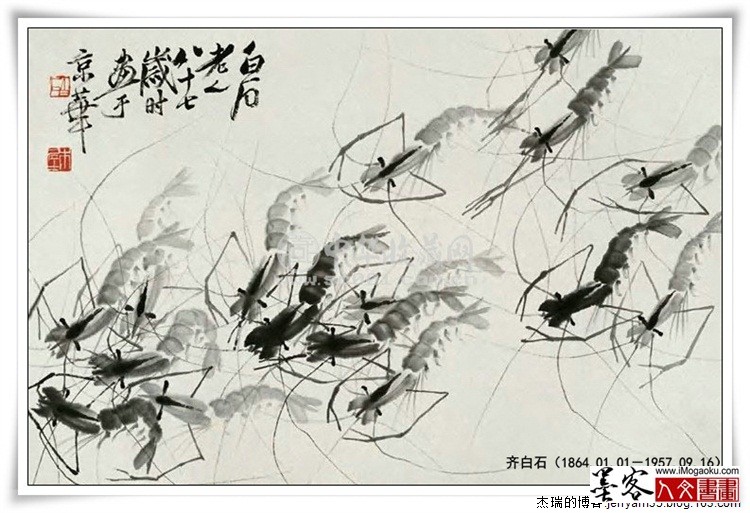 白石
老人
八十七
歲时
畫于
京華
齐白石（1864.01.01－1957.09.16）
www.iMogaoku.com
墨客
人文書畫
杰瑞的博客